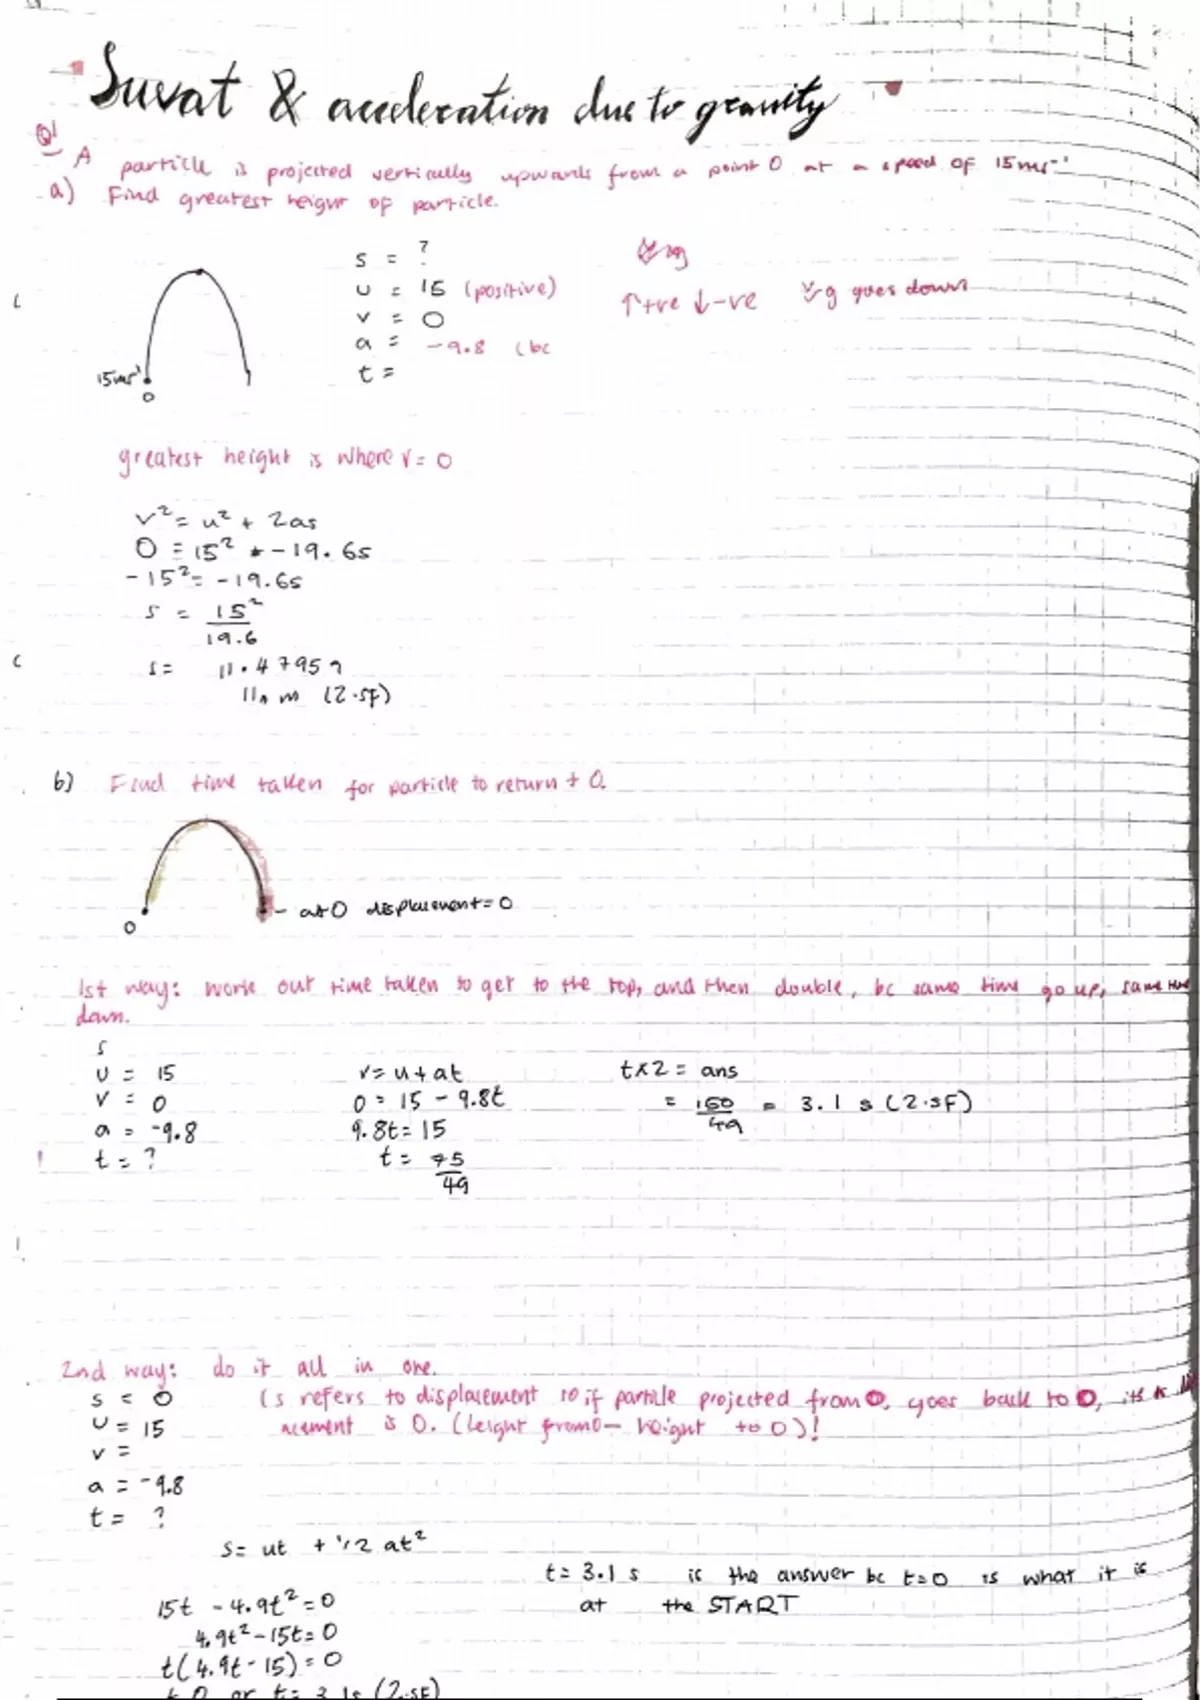 Suvat & acceleration due to gravity
Q1
A particle is projected vertically upwards from a point O at a speed of 15ms⁻¹
a) Find greatest height of particle.
s = ?
u = 15 (positive)
v = 0
a = -9.8 (bc
t =
↑+ve ↓-ve g goes down
15ms⁻¹
O
greatest height is where v = 0
v² = u² + 2as
0 = 15² + -19.6s
-15² = -19.6s
s = 15²/19.6
s = 11.47959
11 m (2.sf)
b) Find time taken for particle to return t O.
O
at O displacement = 0
1st way: work out time taken to get to the top, and then double, bc same time go up, same
down.
s
u = 15
v = 0
a = -9.8
t = ?
v = u + at
0 = 15 - 9.8t
9.8t = 15
t = 75/49
t x 2 = ans
= 150/49 = 3.1 s (2.SF)
2nd way: do it all in one.
s = 0
u = 15
v =
a = -9.8
t = ?
(s refers to displacement so if particle projected from O, goes back to O, its
acement is 0. (height from O - height to O)!
s = ut + 1/2 at²
15t - 4.9t² = 0
4.9t² - 15t = 0
t(4.9t - 15) = 0
t 0 or t = 3.1s (2.SF)
t = 3.1 s is the answer bc t=0 is what it is
at the START